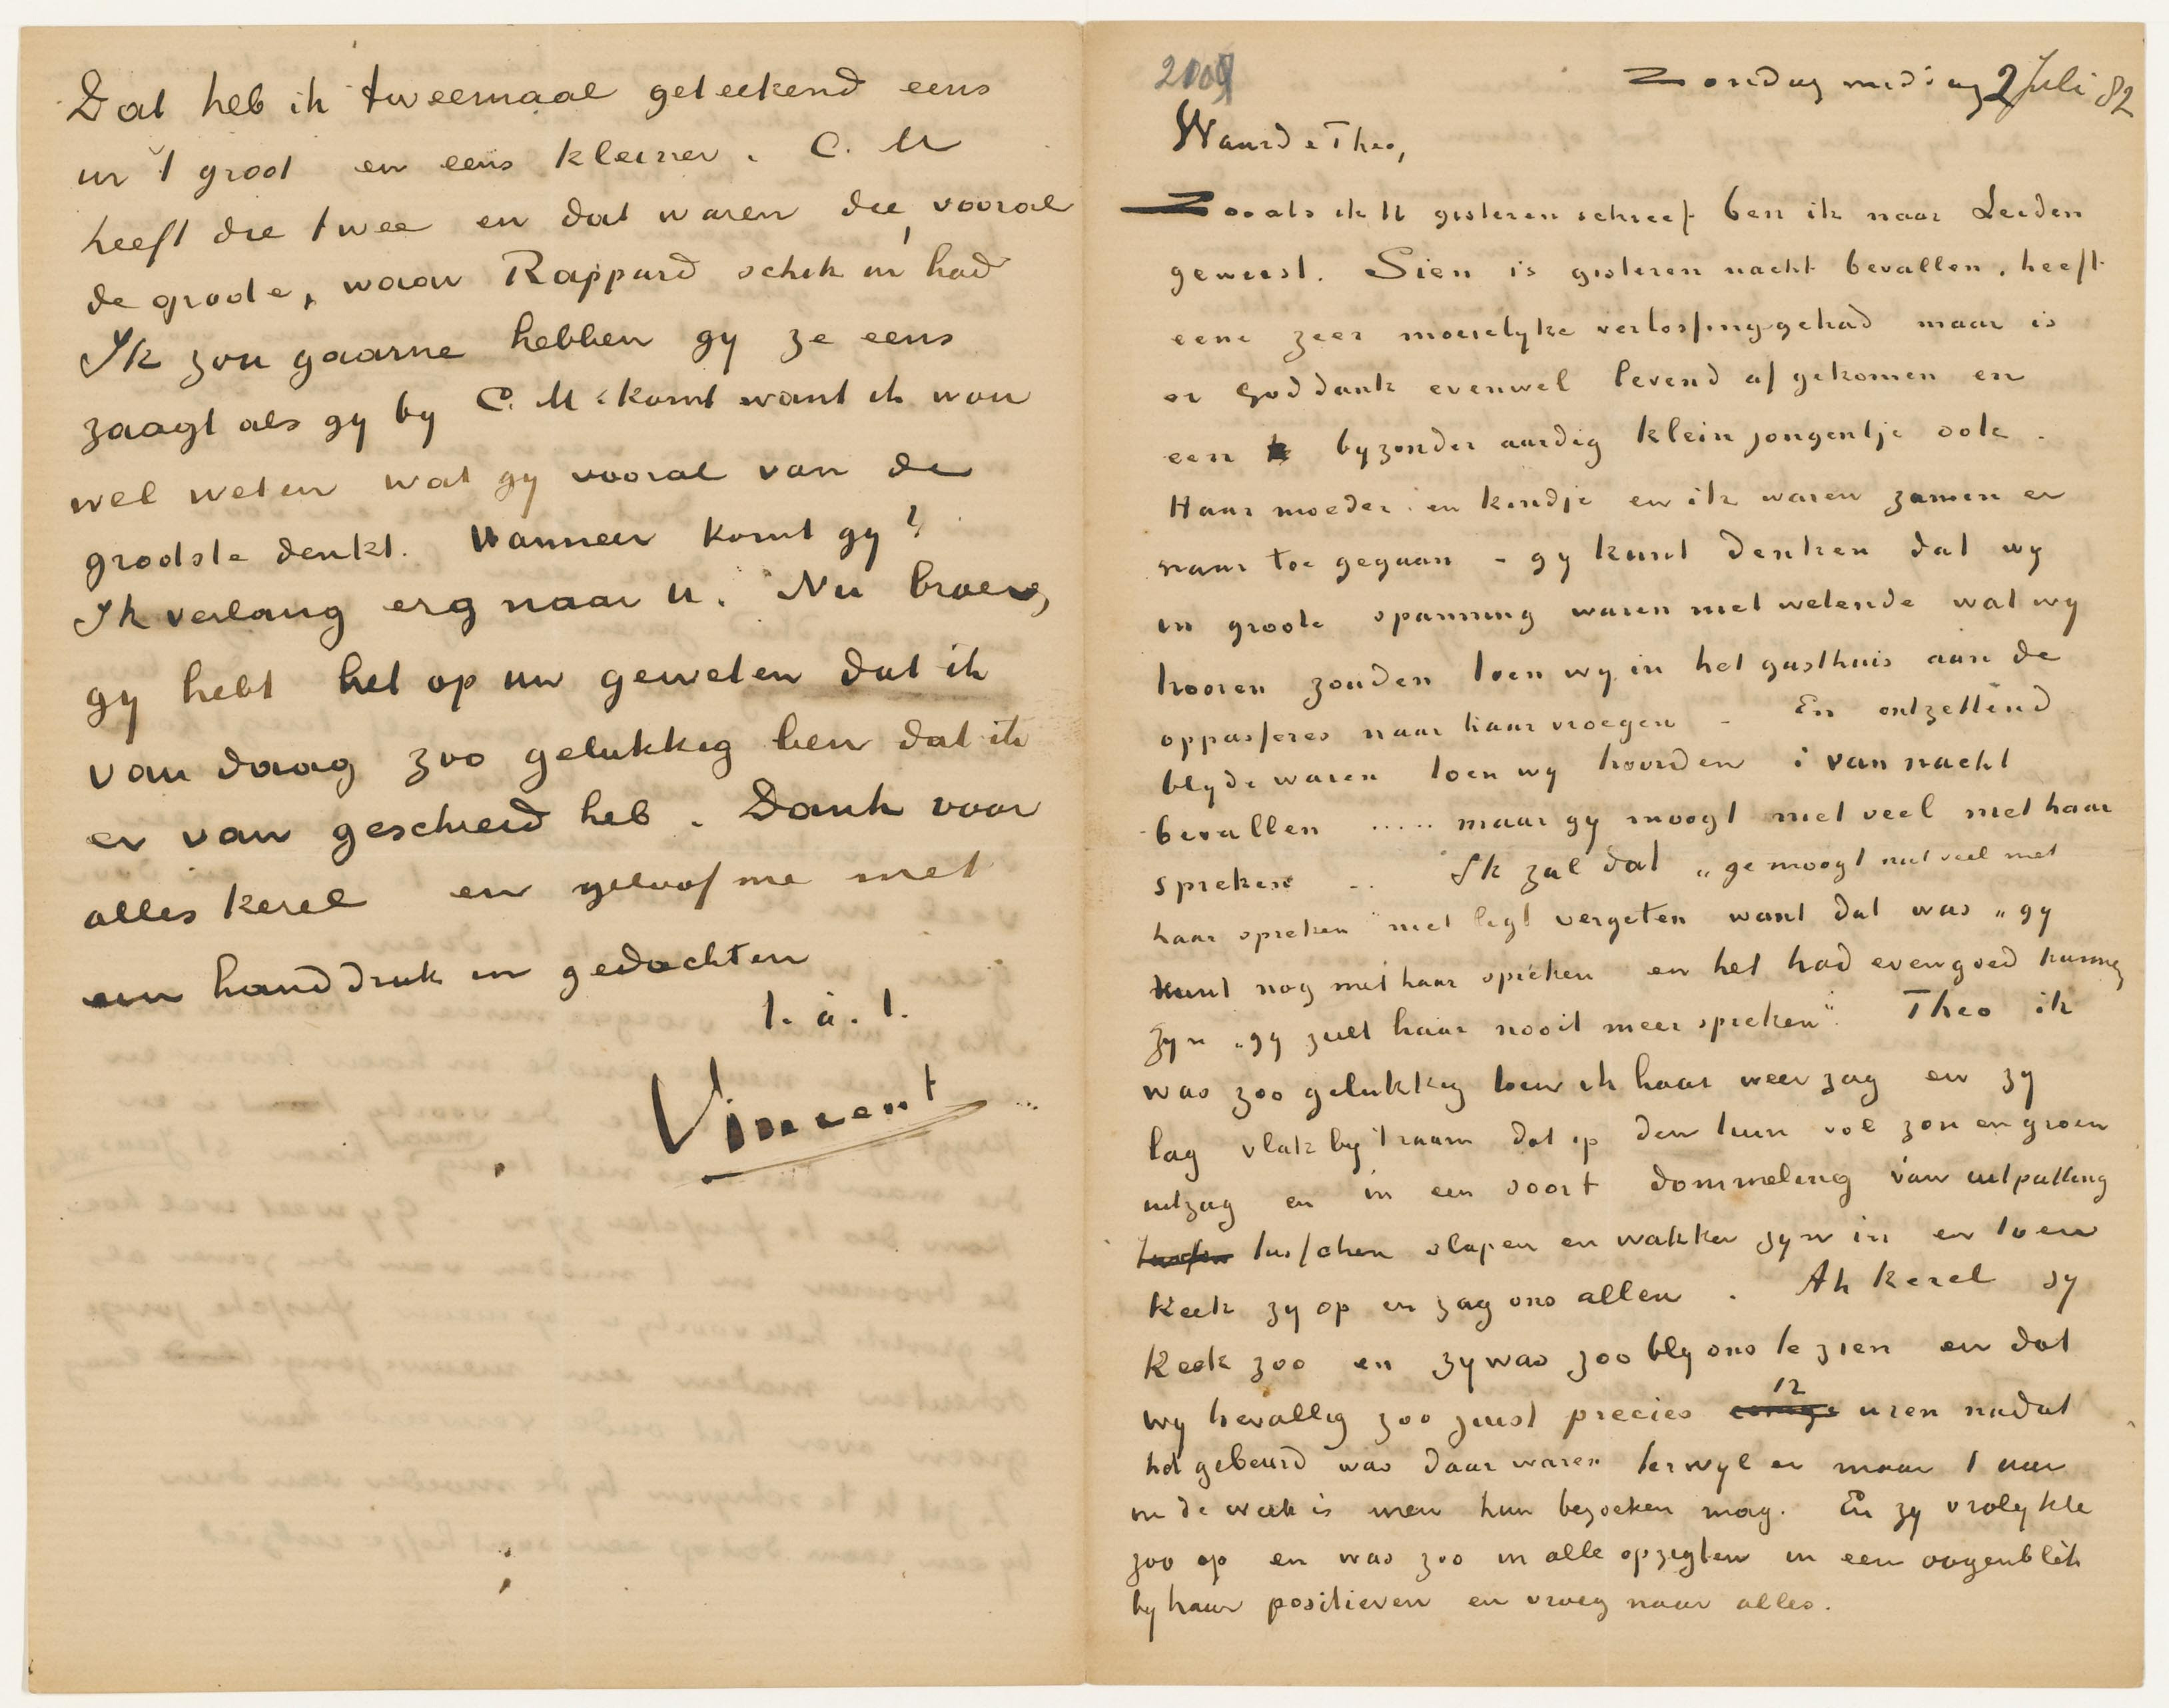 Dat heb ik tweemaal geteekend eens
in 't groot en eens kleiner. C. M
heeft die twee en dat waren die, vooral
de groote, waar Rappard schik in had
Ik zou gaarne hebben gy ze eens
zaagt als gy by C. M. komt want ik wou
wel weten wat gy vooral van de
grootste denkt. Wanneer komt gy?
Ik verlang erg naar u. Nu broer,
gy hebt het op uw geweten dat ik
van daag zoo gelukkig ben dat ik
er van geschreid heb. Dank voor
alles kerel en geloof me met
een handdruk in gedachten
t. à. t.
Vincent
2009
Zondag middag 2 Juli 82
Waarde Theo,
Zooals ik U gisteren schreef ben ik naar Leiden
geweest. Sien is gisteren nacht bevallen, heeft
eene zeer moeielyke verlossing gehad maar is
er Goddank evenwel levend af gekomen en
een byzonder aardig klein jongentje ook.
Haar moeder en kindje en ik waren zamen er
naar toe gegaan – gy kunt denken dat wy
in groote spanning waren niet wetende wat wy
hooren zouden toen wy in het gasthuis aan de
oppasseres naar haar vroegen – En ontzettend
blyde waren toen wy hoorden : van nacht
bevallen ..... maar gy moogt niet veel met haar
spreken .. Ik zal dat „ge moogt niet veel met
haar spreken” niet ligt vergeten want dat was „gy
kunt nog met haar spreken en het had evengoed kunnen
zyn „gy zult haar nooit meer spreken”. Theo ik
was zoo gelukkig toen ik haar weer zag en zy
lag vlak by 't raam dat op den tuin vol zon en groen
uitzag en in een soort dommeling van uitputting
tusschen slapen en wakker zyn in en toen
keek zy op en zag ons allen. Ah kerel zy
keek zoo en zy was zoo bly ons te zien en dat
wy toevallig zoo juist precies 12 uren nadat
het gebeurd was daar waren terwyl er maar 1 uur
in de week is men hun bezoeken mag. En zy vrolykte
zoo op en was zoo in alle opzigten in een oogenblik
by haar positieven en vroeg naar alles.